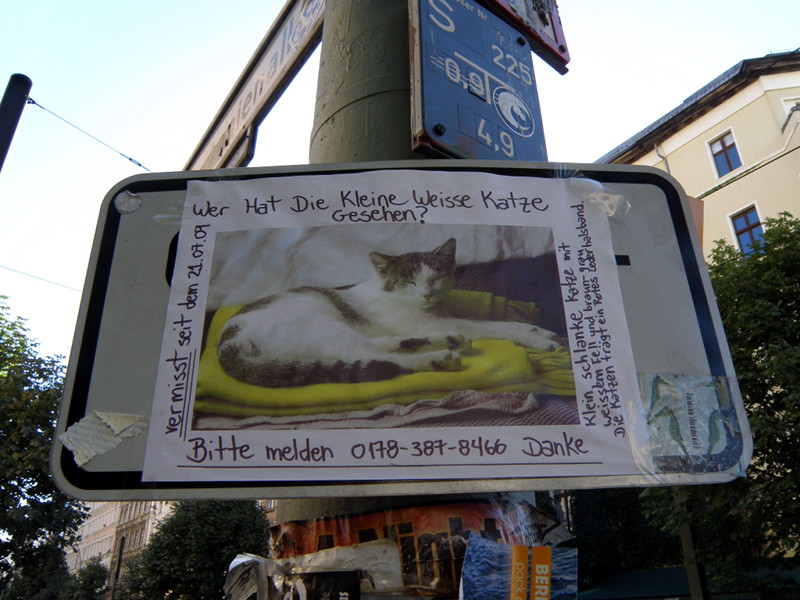 S
225
0,9
4,9
Wer Hat Die Kleine Weisse Katze
Gesehen?
vermisst seit dem 21.07.09
Klein schlanke Katze mit
weissem Fell und braun-grau
Die Katzen trägt ein Rotes Lederhalsband.
Bitte melden 0178-387-8466 Danke
BERL